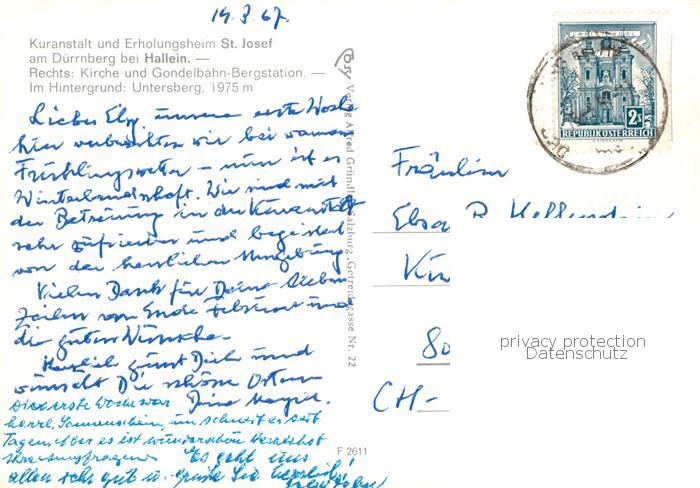 14.3.67.
Kuranstalt und Erholungsheim St. Josef
am Dürrnberg bei Hallein. —
Rechts: Kirche und Gondelbahn-Bergstation. —
Im Hintergrund: Untersberg, 1975 m
Liebes Elsy, unsere erste Woche
hier verbrachten wir bei warmem
Frühlingswetter – nun ist es
Winterlandschaft. Wir sind mit
der Betreuung in der Kuranstalt
sehr zufrieden und begeistert
von der herrlichen Umgebung.
Vielen Dank für Deine lieben
Zeilen von Ende Februar und
die guten Wünsche.
Herzlich grüsst Dich und
wünscht Dir schöne Ostern
Deine
Die erste Woche war
herrl. Sonnenschein, nun schneit es seit
Tagen. Aber es ist wunderschön
Es geht uns
allen sehr gut u. grüße Sie herzlich!
Cosy-Verlag Alfred Gründler, Salzburg, Getreidegasse Nr. 22
F 2611
2 S
REPUBLIK ÖSTERREICH
Fräulein
Elsa
CH-
privacy protection
Datenschutz